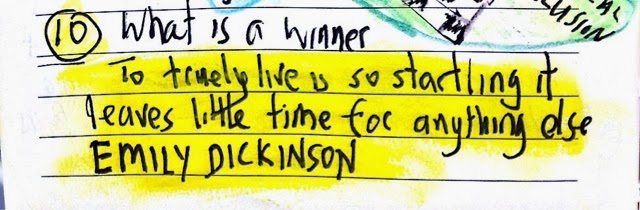 10 What is a winner
To truely live is so startling it
leaves little time for anything else
EMILY DICKINSON